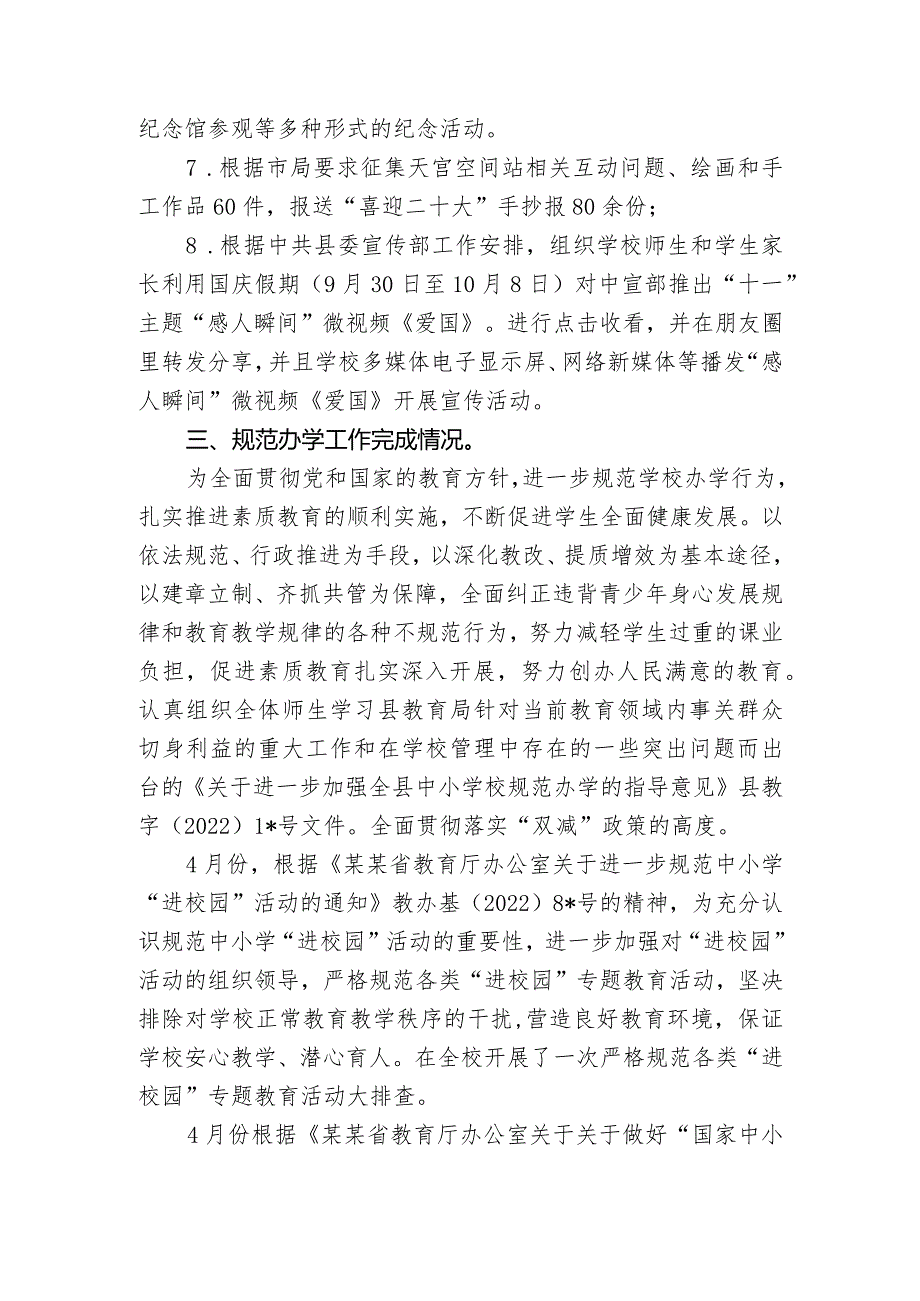 纪念馆参观等多种形式的纪念活动。
7.根据市局要求征集天宫空间站相关互动问题、绘画和手
工作品60件，报送“喜迎二十大”手抄报80余份；
8.根据中共县委宣传部工作安排，组织学校师生和学生家
长利用国庆假期（9月30日至10月8日）对中宣部推出“十一”
主题“感人瞬间”微视频《爱国》。进行点击收看，并在朋友圈
里转发分享,并且学校多媒体电子显示屏、网络新媒体等播发“感
人瞬间”微视频《爱国》开展宣传活动。
三、规范办学工作完成情况。
为全面贯彻党和国家的教育方针,进一步规范学校办学行为,
扎实推进素质教育的顺利实施，不断促进学生全面健康发展。以
依法规范、行政推进为手段，以深化教改、提质增效为基本途径，
以建章立制、齐抓共管为保障，全面纠正违背青少年身心发展规
律和教育教学规律的各种不规范行为，努力减轻学生过重的课业
负担，促进素质教育扎实深入开展，努力创办人民满意的教育。
认真组织全体师生学习县教育局针对当前教育领域内事关群众
切身利益的重大工作和在学校管理中存在的一些突出问题而出
台的《关于进一步加强全县中小学校规范办学的指导意见》县教
字（2022）1*号文件。全面贯彻落实“双减”政策的高度。
4月份，根据《某某省教育厅办公室关于进一步规范中小学
“进校园”活动的通知》教办基（2022）8*号的精神，为充分认
识规范中小学“进校园”活动的重要性，进一步加强对“进校园”
活动的组织领导，严格规范各类“进校园”专题教育活动，坚决
排除对学校正常教育教学秩序的干扰,营造良好教育环境，保证
学校安心教学、潜心育人。在全校开展了一次严格规范各类“进
校园”专题教育活动大排查。
4月份根据《某某省教育厅办公室关于关于做好“国家中小